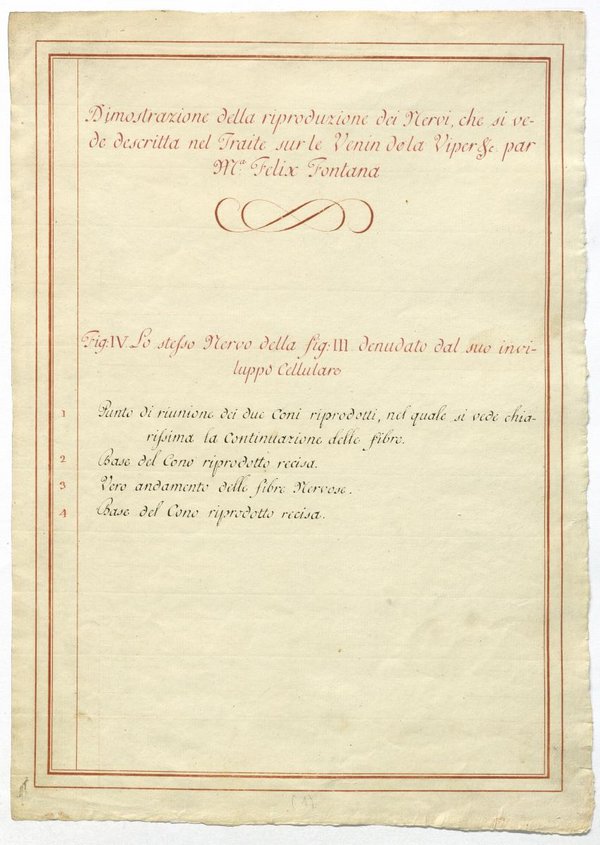 Dimostrazione della riproduzione dei Nervi, che si ve-
de descritta nel Traite sur le Venin de la Viper &c par
Mr. Felix Fontana
Fig: IV Lo stesso Nervo della fig: III denudato dal suo invi-
luppo Cellulare
1 Punto di riunione dei due Coni riprodotti, nel quale si vede chia-
rissima la Continuazione delle fibre.
2 Base del Cono riprodotto recisa.
3 Vero andamento delle fibre Nervose.
4 Base del Cono riprodotto recisa.